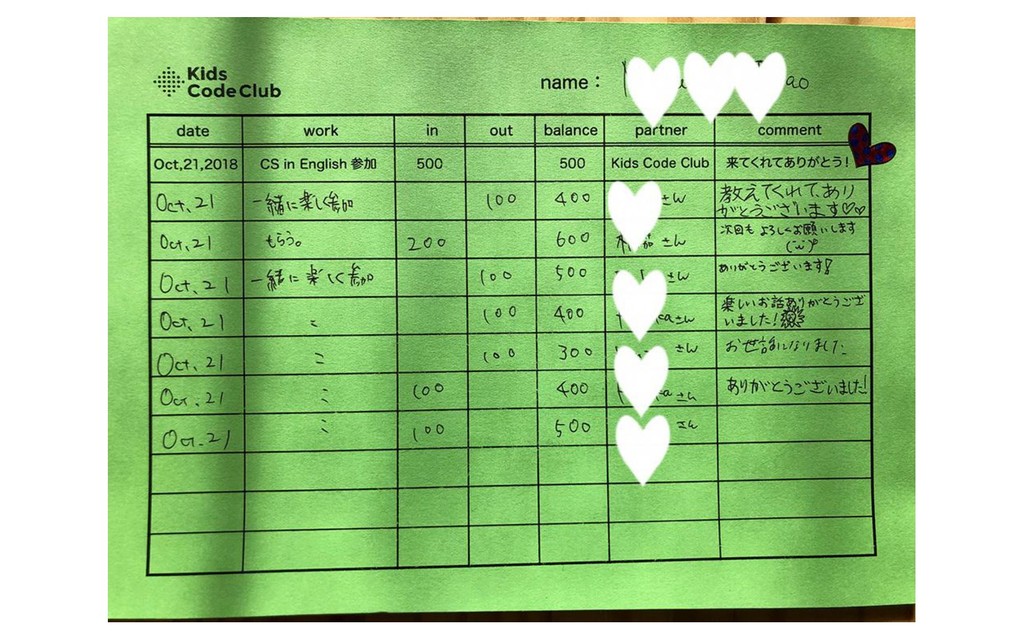 Kids
Code Club
name :
date work in out balance partner comment
Oct,21,2018 CS in English 参加 500 500 Kids Code Club 来てくれてありがとう!
Oct,21 一緒に楽しく参加 100 400 さん 教えてくれて、あり
がとうございます♡♡
Oct,21 もらう。 200 600 さん 次回も よろしくお願いします
Oct,21 一緒に楽しく参加 100 500 さん ありがとうございます!
Oct,21 〃 100 400 さん 楽しいお話ありがとうござ
いました!
Oct,21 〃 100 300 さん お世話になりました
Oct,21 〃 100 400 さん ありがとうございました!
Oct,21 〃 100 500 さん